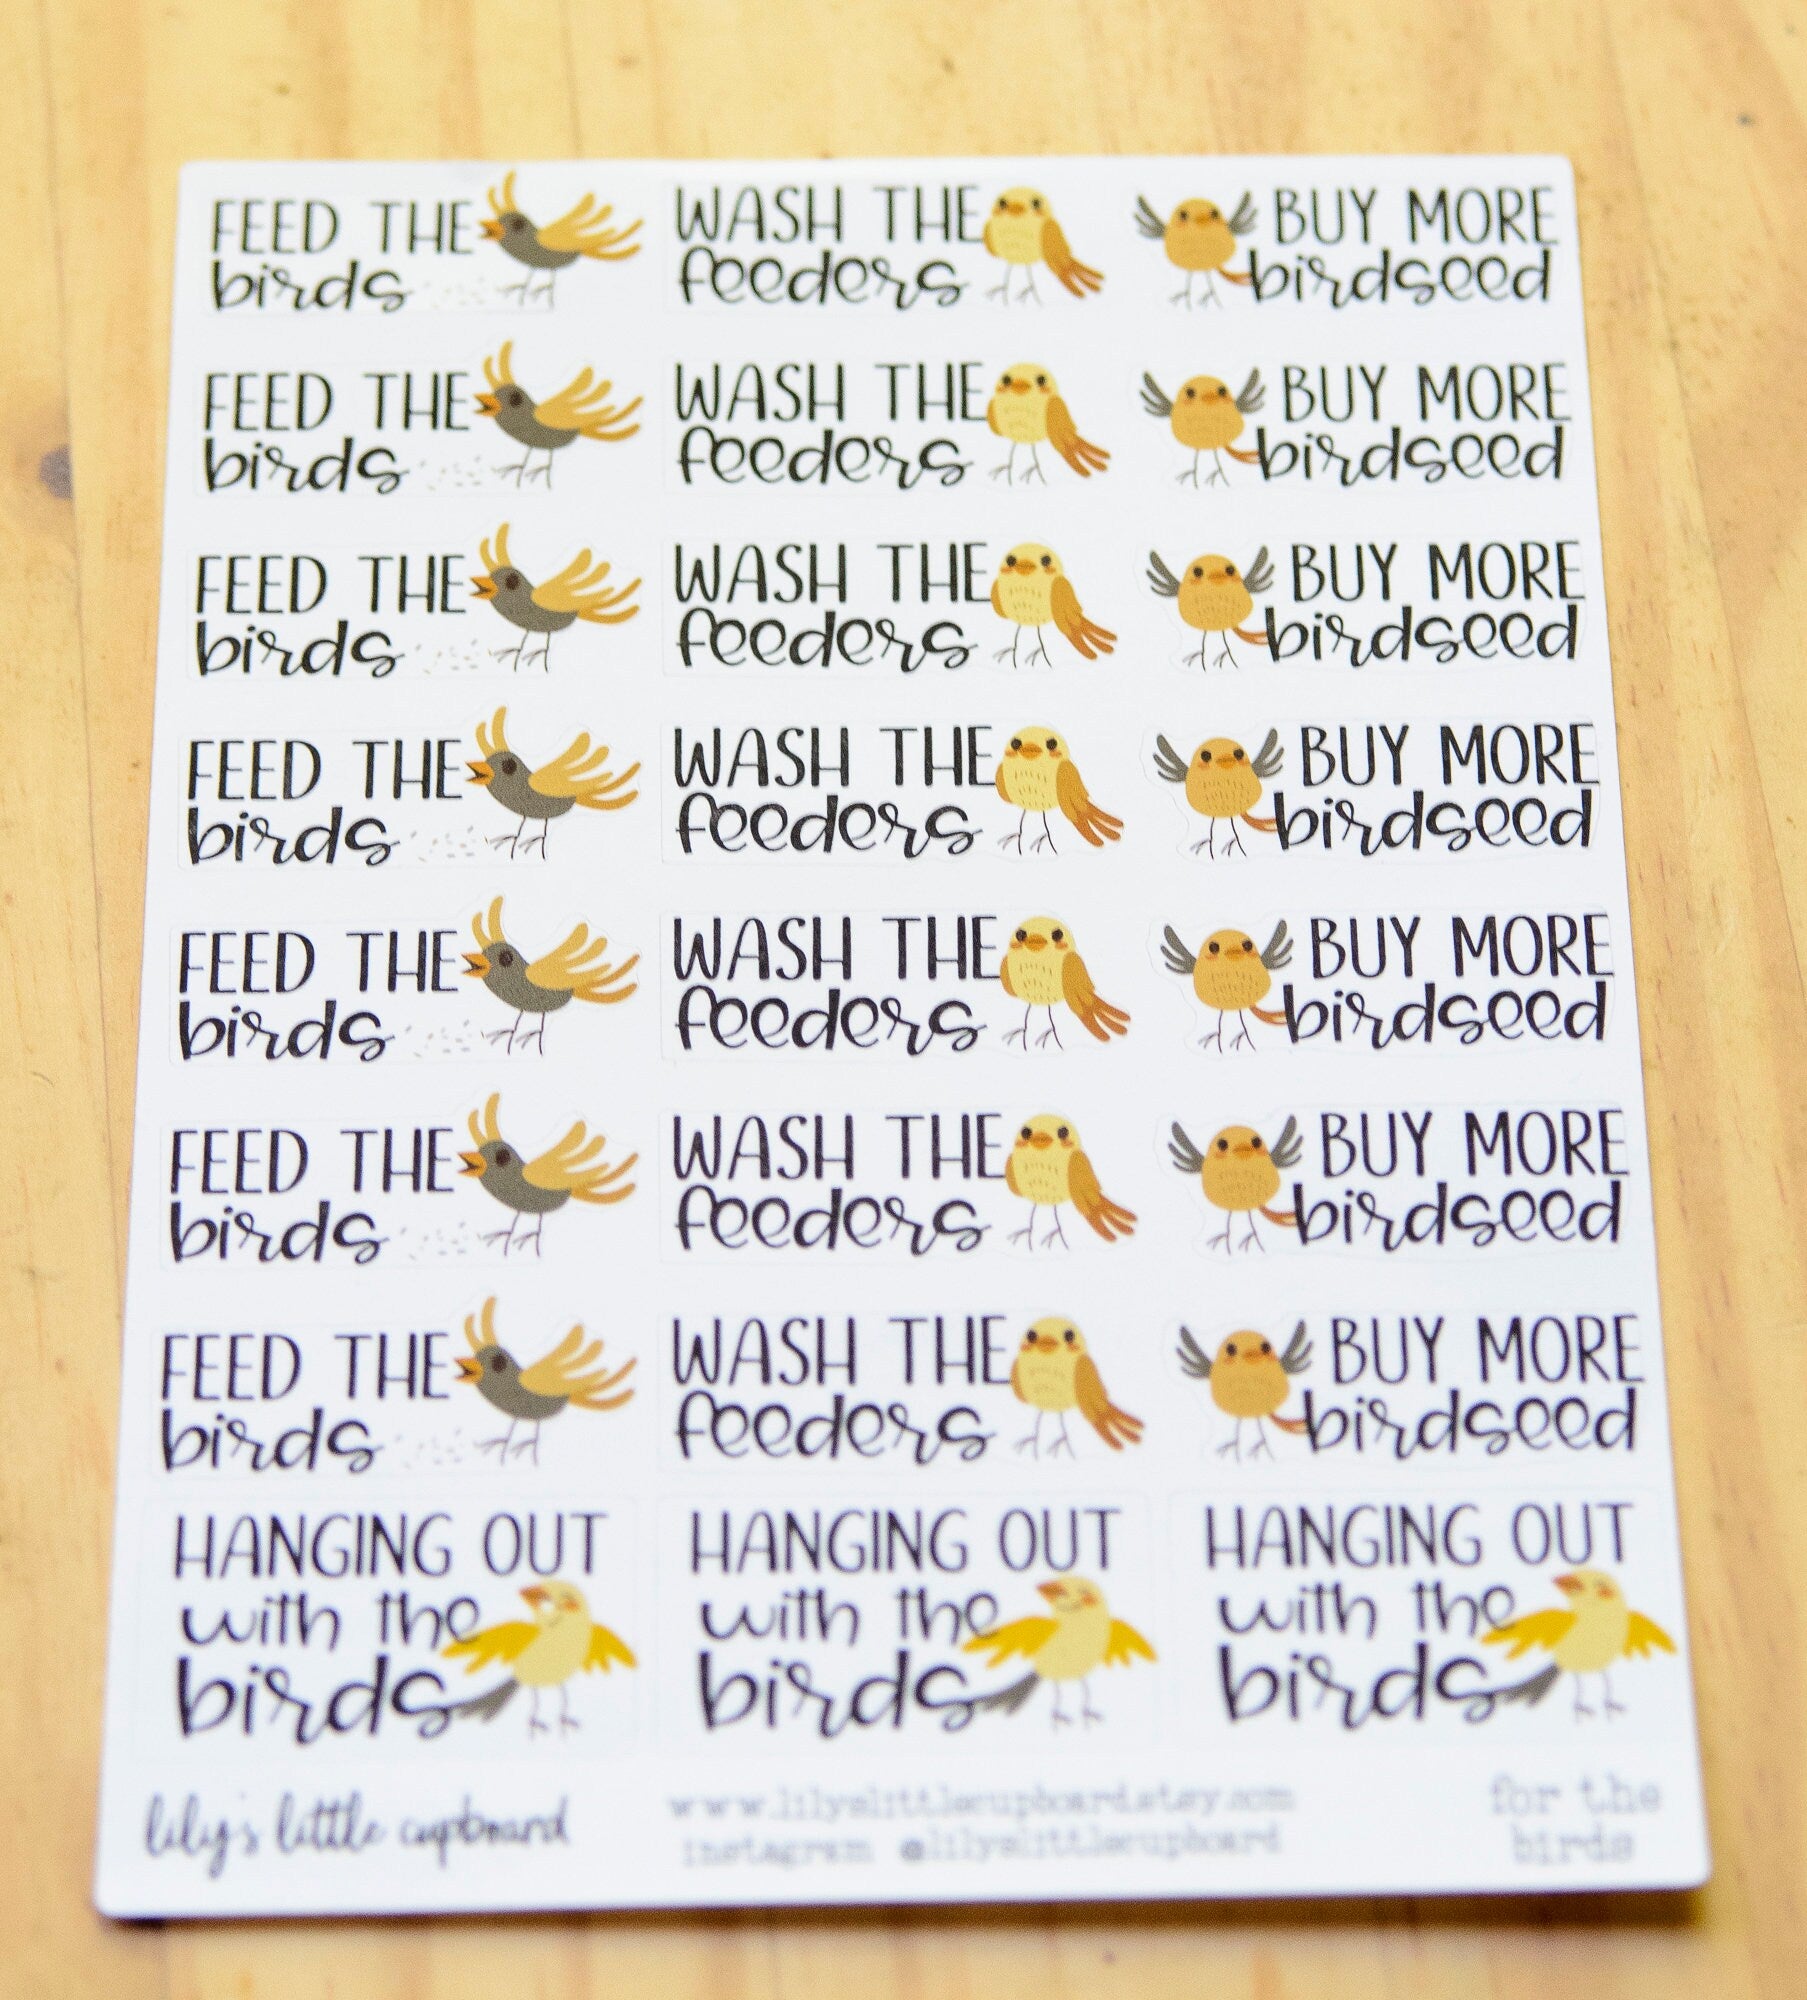 FEED THE
birds
WASH THE
feeders
BUY MORE
birdseed
FEED THE
birds
WASH THE
feeders
BUY MORE
birdseed
FEED THE
birds
WASH THE
feeders
BUY MORE
birdseed
FEED THE
birds
WASH THE
feeders
BUY MORE
birdseed
FEED THE
birds
WASH THE
feeders
BUY MORE
birdseed
FEED THE
birds
WASH THE
feeders
BUY MORE
birdseed
FEED THE
birds
WASH THE
feeders
BUY MORE
birdseed
HANGING OUT
with the
birds
HANGING OUT
with the
birds
HANGING OUT
with the
birds
lily's little cupboard
www.lilyslittlecupboard.etsy.com
instagram @lilyslittlecupboard
for the
birds